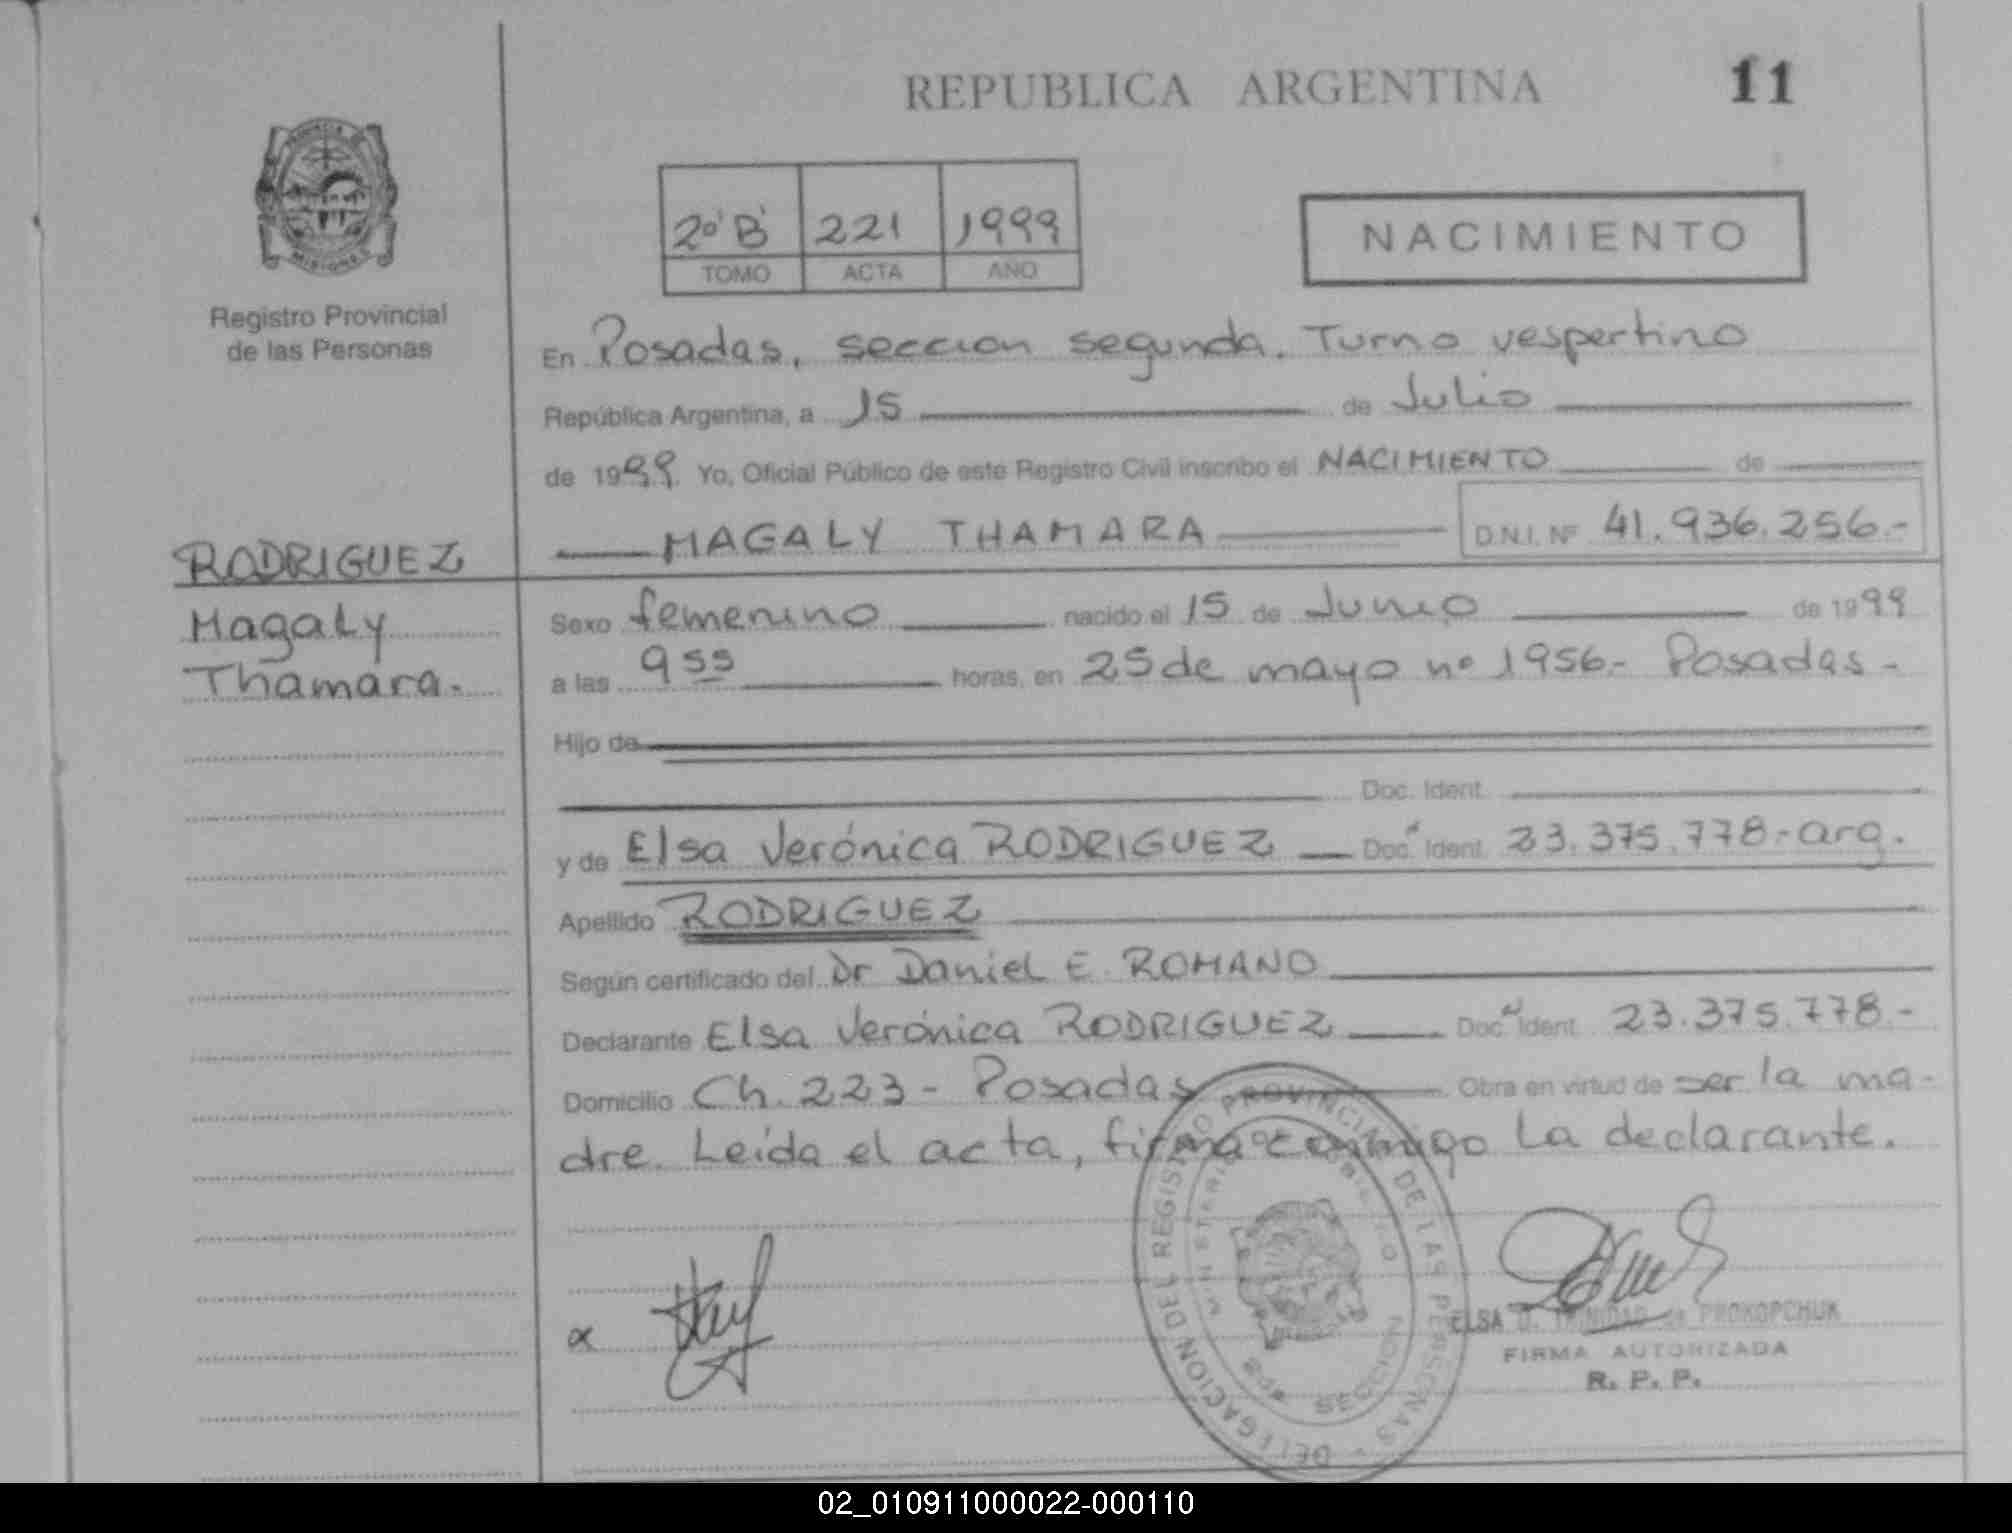 REPUBLICA ARGENTINA
11
PROVINCIA
MISIONES
Registro Provincial
de las Personas
2º'B' 221 1999
TOMO ACTA AÑO
NACIMIENTO
En Posadas, seccion segunda. Turno vespertino
República Argentina, a 15 de Julio
de 1999. Yo, Oficial Público de este Registro Civil inscribo el NACIMIENTO de
MAGALY THAMARA D.N.I. Nº 41.936.256.-
RODRIGUEZ
Magaly
Thamara.
Sexo femenino nacido el 15 de Junio de 1999
a las 9 55 horas, en 25 de mayo nº 1956.- Posadas -
Hijo de
Doc. Ident.
y de Elsa Verónica RODRIGUEZ Doc. Ident. 23.375.778.- arg.
Apellido RODRIGUEZ
Según certificado del Dr Daniel E. ROMANO
Declarante Elsa Verónica RODRIGUEZ Doc. Ident. 23.375.778.-
Domicilio Ch. 223 - Posadas Obra en virtud de ser la ma-
dre. Leída el acta, firma conmigo La declarante.
DELEGACION DEL REGISTRO PROVINCIAL DE LAS PERSONAS
SECCION
ELSA D. TRINIDAD de PROKOPCHUK
FIRMA AUTORIZADA
R. P. P.
02_010911000022-000110